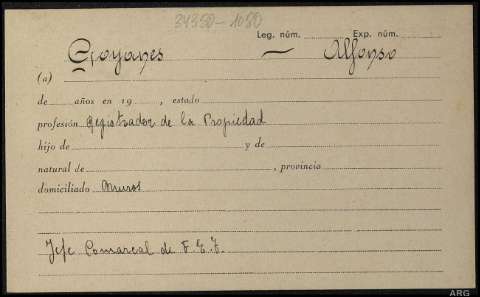 34350-1080
Leg. núm. Exp. núm.
Goyanes — Alfonso
(a)
de años en 19 , estado
profesión Registrador de la Propiedad
hijo de y de
natural de , provincia
domiciliado Muros
Jefe Comarcal de F.E.T.
ARG